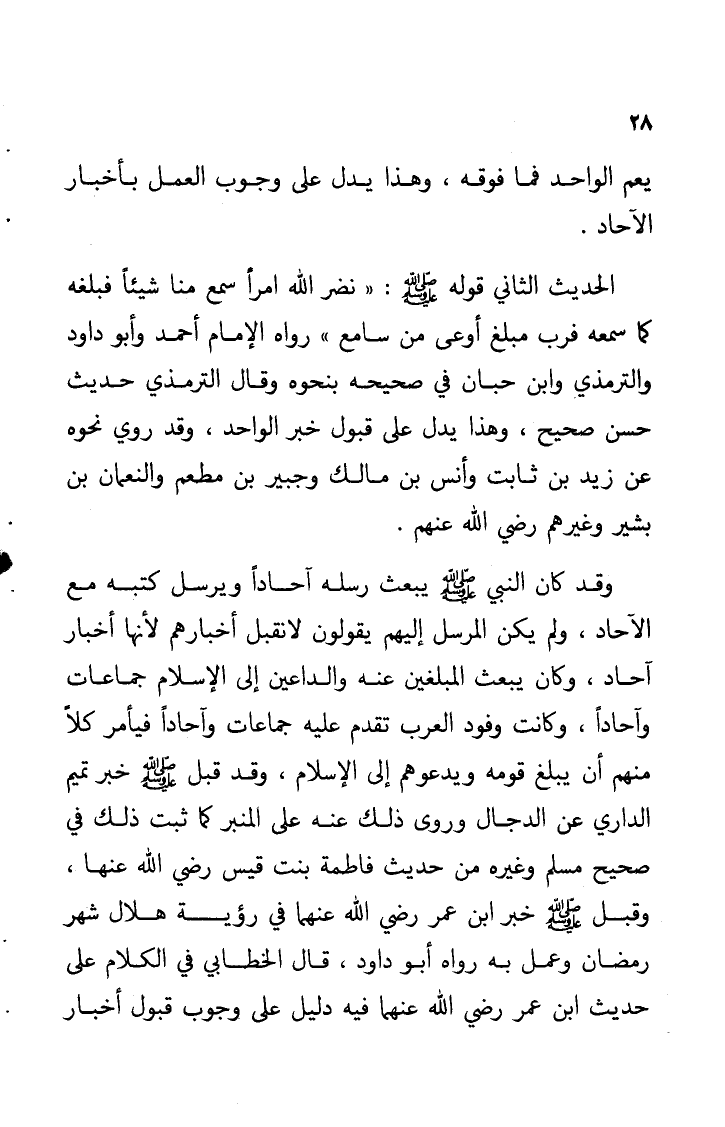 ٢٨
يعم الواحد فما فوقه ، وهذا يدل على وجوب العمل بأخبار
الآحاد .
الحديث الثاني قوله ﷺ : « نضر الله امرأ سمع منا شيئاً فبلغه
كما سمعه فرب مبلغ أوعى من سامع » رواه الإمام أحمد وأبو داود
والترمذي وابن حبان في صحيحه بنحوه وقال الترمذي حديث
حسن صحيح ، وهذا يدل على قبول خبر الواحد ، وقد روي نحوه
عن زيد بن ثابت وأنس بن مالك وجبير بن مطعم والنعمان بن
بشير وغيرهم رضي الله عنهم .
وقد كان النبي ﷺ يبعث رسله آحاداً ويرسل كتبه مع
الآحاد ، ولم يكن المرسل إليهم يقولون لانقبل أخبارهم لأنها أخبار
آحاد ، وكان يبعث المبلغين عنه والداعين إلى الإسلام جماعات
وآحاداً ، وكانت وفود العرب تقدم عليه جماعات وآحاداً فيأمر كلاً
منهم أن يبلغ قومه ويدعوهم إلى الإسلام ، وقد قبل ﷺ خبر تميم
الداري عن الدجال وروى ذلك عنه على المنبر كما ثبت ذلك في
صحيح مسلم وغيره من حديث فاطمة بنت قيس رضي الله عنها ،
وقبل ﷺ خبر ابن عمر رضي الله عنهما في رؤية هلال شهر
رمضان وعمل به رواه أبو داود ، قال الخطابي في الكلام على
حديث ابن عمر رضي الله عنهما فيه دليل على وجوب قبول أخبار